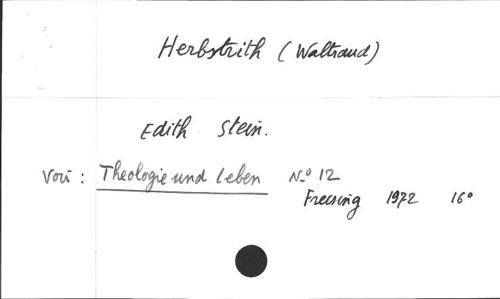 Herbstrith (Waltraud)
Edith Stein.
Voir : Theologie und Leben N.º 12
Freising 1972 16º